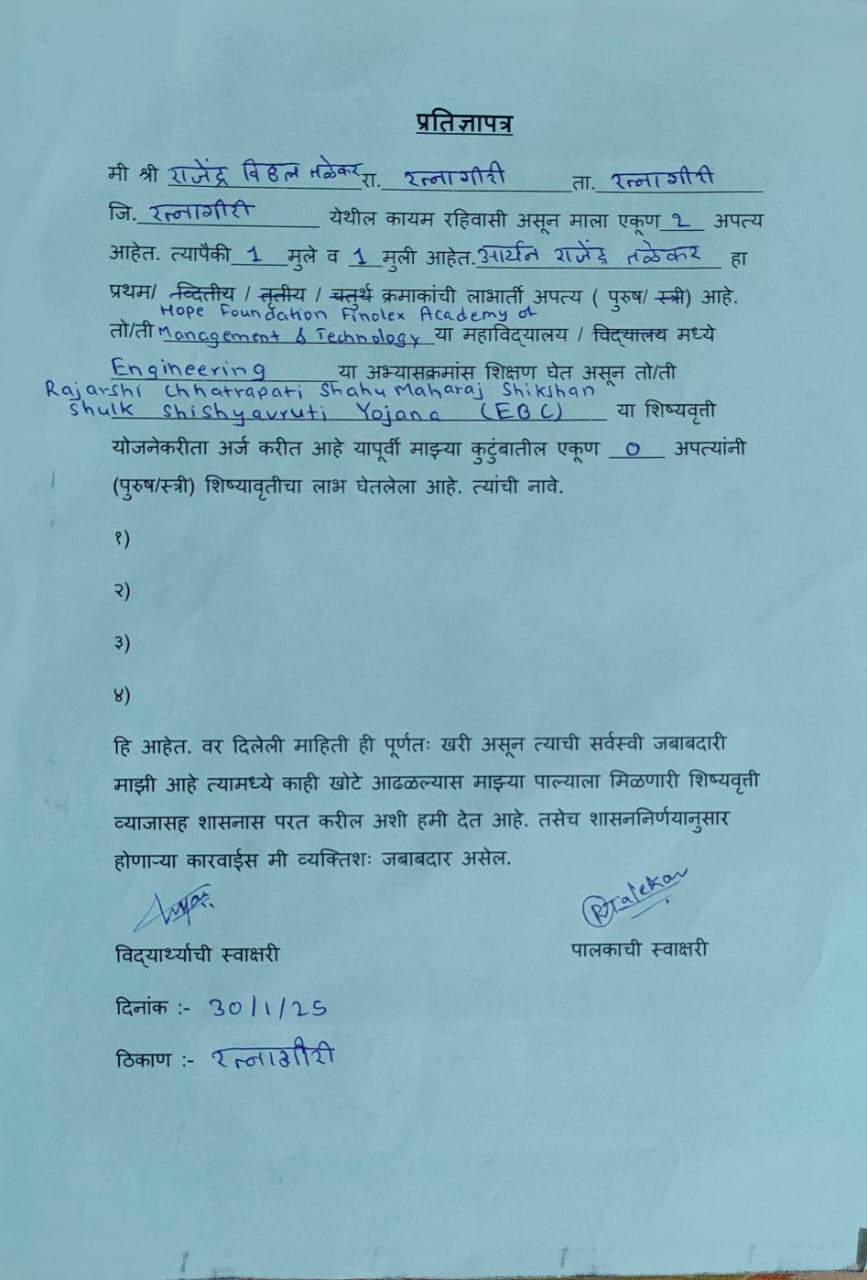 प्रतिज्ञापत्र
मी श्री राजेंद्र विठ्ठल तळेकर रा. रत्नागीरी ता. रत्नागीरी
जि. रत्नागीरी येथील कायम रहिवासी असून माला एकूण 2 अपत्य
आहेत. त्यापैकी 1 मुले व 1 मुली आहेत. आर्यन राजेंद्र तळेकर हा
प्रथम/ व्दितीय / तृतीय / चतुर्थ क्रमाकांची लाभार्ती अपत्य ( पुरुष/ स्त्री) आहे.
Hope Foundation Finolex Academy of
तो/ती Management & Technology या महाविद्यालय / विद्यालय मध्ये
Engineering या अभ्यासक्रमांस शिक्षण घेत असून तो/ती
Rajarshi Chhatrapati Shahu Maharaj Shikshan
Shulk Shishyavruti Yojana (EBC) या शिष्यवृत्ती
योजनेकरीता अर्ज करीत आहे यापूर्वी माझ्या कुटुंबातील एकूण 0 अपत्यांनी
(पुरुष/स्त्री) शिष्यावृतीचा लाभ घेतलेला आहे. त्यांची नावे.
१)
२)
३)
४)
हि आहेत. वर दिलेली माहिती ही पूर्णतः खरी असून त्याची सर्वस्वी जबाबदारी
माझी आहे त्यामध्ये काही खोटे आढळल्यास माझ्या पाल्याला मिळणारी शिष्यवृत्ती
व्याजासह शासनास परत करील अशी हमी देत आहे. तसेच शासननिर्णयानुसार
होणाऱ्या कारवाईस मी व्यक्तिशः जबाबदार असेल.
RTalekar
विद्यार्थ्याची स्वाक्षरी पालकाची स्वाक्षरी
दिनांक :- 30/1/25
ठिकाण :- रत्नागीरी